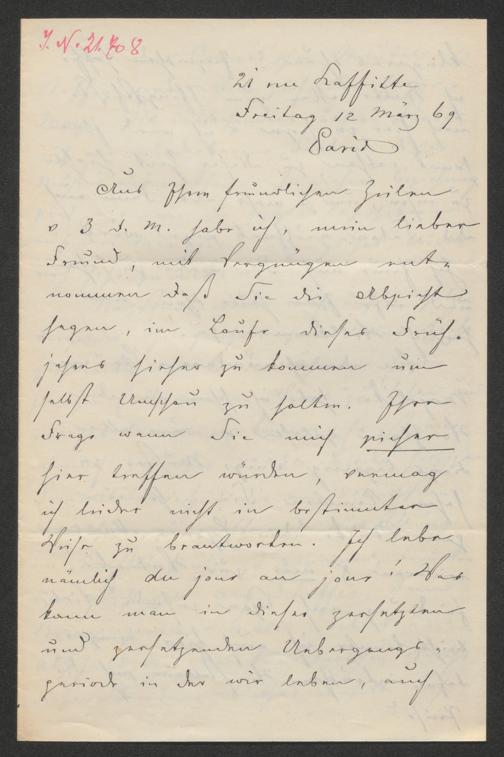 J. N. 21.708
21 rue Laffitte
Freitag 12 März 69
Paris
Aus Ihren freundlichen Zeilen
v 3 d. M. habe ich, mein lieber
Freund, mit Vergnügen ent-
nommen daß Sie die Absicht
hegen, im Laufe dieses Früh-
jahres hieher zu kommen um
selbst Umschau zu halten. Ihre
Frage wann Sie mich sicher
hier treffen würden, vermag
ich leider nicht in bestimmter
Weise zu beantworten. Ich lebe
nämlich du jour au jour! Was
kann man in dieser zersetzten
und zersetzenden Uebergangs-
periode in der wir leben, auch